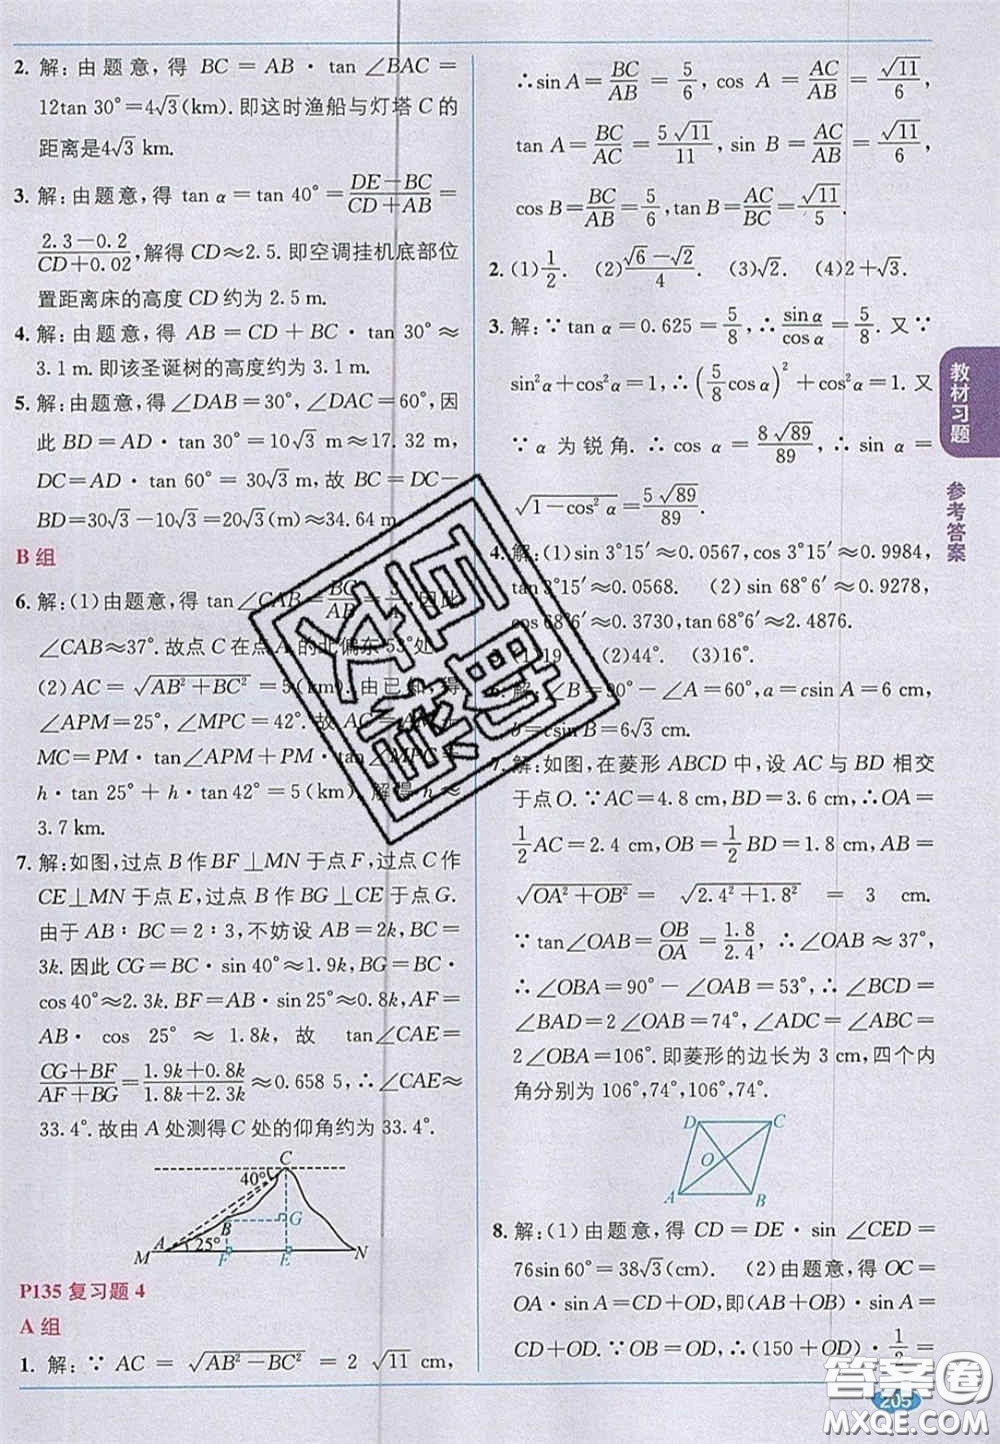 2. 解:由题意,得 BC=AB·tan ∠BAC=
12tan 30°=4√3(km).即这时渔船与灯塔 C 的
距离是4√3 km.
3. 解:由题意,得 tan α=tan 40°=(DE-BC)/(CD+AB)=
(2.3-0.2)/(CD+0.02),解得 CD≈2.5.即空调挂机底部位
置距离床的高度 CD 约为 2.5 m.
4. 解:由题意,得 AB=CD+BC·tan 30°≈
3.1 m.即该圣诞树的高度约为 3.1 m.
5. 解:由题意,得∠DAB=30°,∠DAC=60°,因
此 BD=AD·tan 30°=10√3 m≈17.32 m,
DC=AD·tan 60°=30√3 m,故 BC=DC-
BD=30√3-10√3=20√3(m)≈34.64 m.
B 组
6. 解:(1)由题意,得 tan∠CAB=BC/AB= .因此
∠CAB≈37°.故点 C 在点 A 的北偏东 53°处.
(2)AC=√(AB²+BC²)=5(km).由已知,得
∠APM=25°,∠MPC=42°.故 AC=AM+
MC=PM·tan∠APM+PM·
h·tan 25°+h·tan 42°=5(km).解得 h≈
3.7 km.
7. 解:如图,过点 B 作 BF⊥MN 于点 F,过点 C 作
CE⊥MN 于点 E,过点 B 作 BG⊥CE 于点 G.
由于 AB∶BC=2∶3,不妨设 AB=2k,BC=
3k.因此 CG=BC·sin 40°≈1.9k,BG=BC·
cos 40°≈2.3k.BF=AB·sin 25°≈0.8k,AF=
AB·cos 25°≈1.8k,故 tan∠CAE=
(CG+BF)/(AF+BG)≈(1.9k+0.8k)/(1.8k+2.3k)≈0.658 5,∠CAE≈
33.4°.故由 A 处测得 C 处的仰角约为 33.4°.
C
40°
B
G
A
25°
M
F
E
N
P135 复习题 4
A 组
1. 解:∵ AC=√(AB²-BC²)=2√11 cm,
∴sin A=BC/AB=5/6,cos A=AC/AB=√11/6,
tan A=BC/AC=5√11/11,sin B=AC/AB=√11/6,
cos B=BC/AB=5/6,tan B=AC/BC=√11/5.
2. (1)1/2. (2)(√6-√2)/4. (3)√2. (4)2+√3.
3. 解:∵tan α=0.625=5/8,∴sin α/cos α=5/8.又∵
sin²α+cos²α=1,∴(5/8 cos α)²+cos²α=1.又
∵α 为锐角.∴cos α=8√89/89.∴sin α=
√(1-cos²α)=5√89/89.
4. 解:(1)sin 3°15′≈0.0567,cos 3°15′≈0.9984,
tan 3°15′≈0.0568. (2)sin 68°6′≈0.9278,
cos 68°6′≈0.3730,tan 68°6′≈2.4876.
(2)44°. (3)16°.
6. 解:∠B=90°-∠A=60°,a=csin A=6 cm,
b=csin B=6√3 cm.
7. 解:如图,在菱形 ABCD 中,设 AC 与 BD 相交
于点O.∵AC=4.8 cm,BD=3.6 cm,∴OA=
1/2 AC=2.4 cm,OB=1/2 BD=1.8 cm.∴AB=
√(OA²+OB²)=√(2.4²+1.8²)=3 cm.
∵tan∠OAB=OB/OA=1.8/2.4,∴∠OAB≈37°,
∴∠OBA=90°-∠OAB=53°,∴∠BCD=
∠BAD=2∠OAB=74°,∠ADC=∠ABC=
2∠OBA=106°.即菱形的边长为 3 cm,四个内
角分别为 106°,74°,106°,74°.
D
C
O
A
B
8. 解:(1)由题意,得 CD=DE·sin ∠CED=
76sin 60°=38√3(cm). (2)由题意,得 OC=
OA·sin∠OAC=CD+OD,即(AB+OB)·1/2=
CD+OD.∵OB=OD,∴(150+OD)·1/2=
教材习题
参考答案
205
答案卷
MXQE.COM